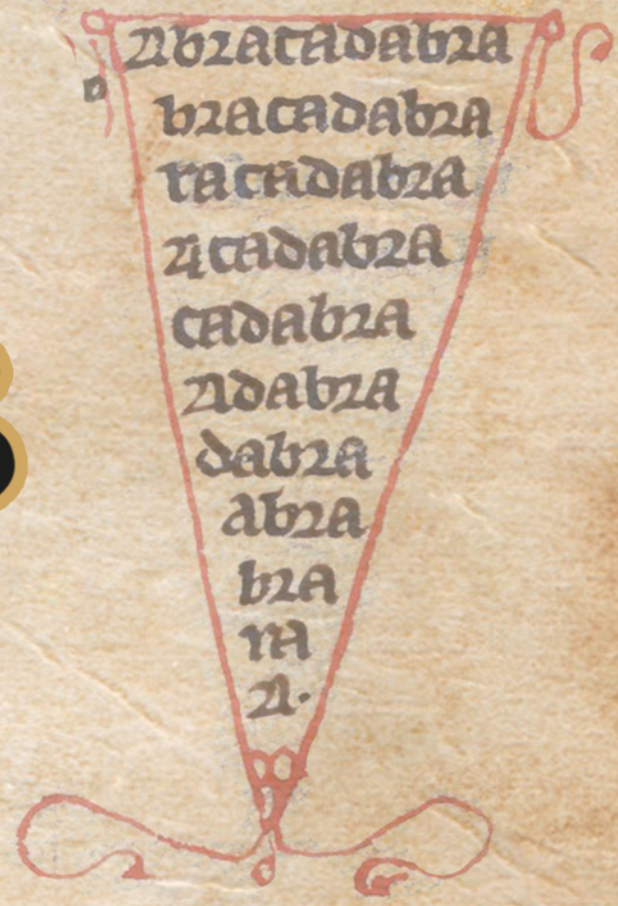 Abracadabra
bracadabra
racadabra
Acadabra
cadabra
Adabra
dabra
abra
bra
ra
A.